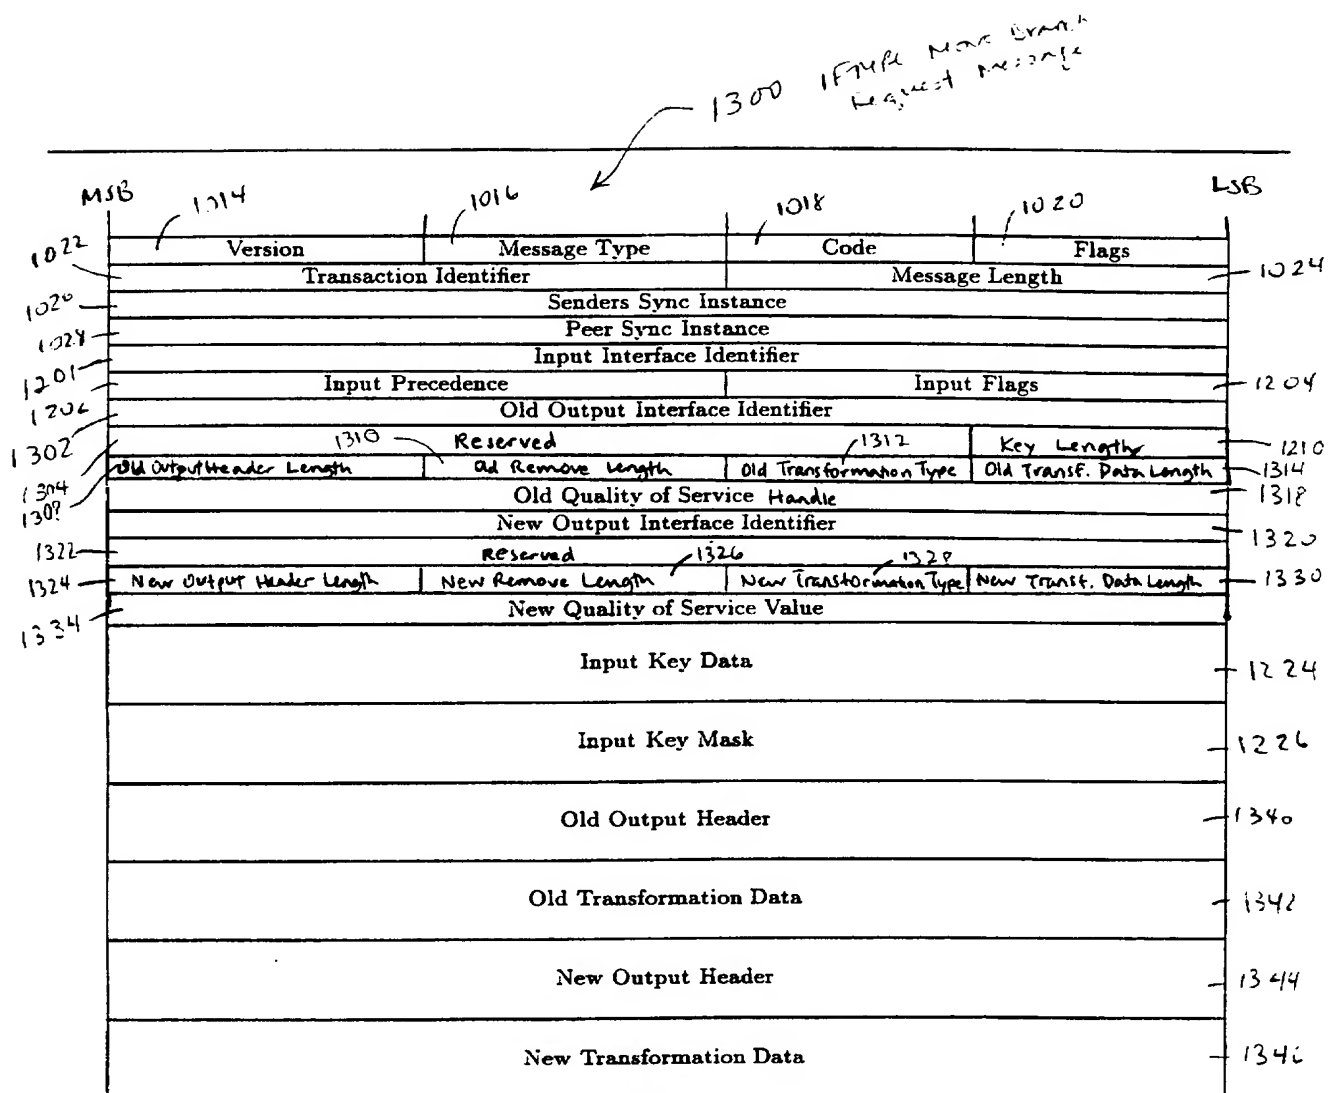 1300 IFMP Move Branch
Request Message
MSB
LSB
1014
1016
1018
1020
Version Message Type Code Flags
1022
Transaction Identifier Message Length
1024
Senders Sync Instance
Peer Sync Instance
1028
Input Interface Identifier
1201
Input Precedence Input Flags
1204
Old Output Interface Identifier
1302
1310
Reserved
1312
Key Length
1210
Old Output Header Length Old Remove Length Old Transformation Type Old Transf. Data Length
1314
1304
Old Quality of Service Handle
1318
New Output Interface Identifier
1320
1322
Reserved
1326
1328
1324
New Output Header Length New Remove Length New Transformation Type New Transf. Data Length
1330
New Quality of Service Value
1334
Input Key Data
1224
Input Key Mask
1226
Old Output Header
1340
Old Transformation Data
1342
New Output Header
1344
New Transformation Data